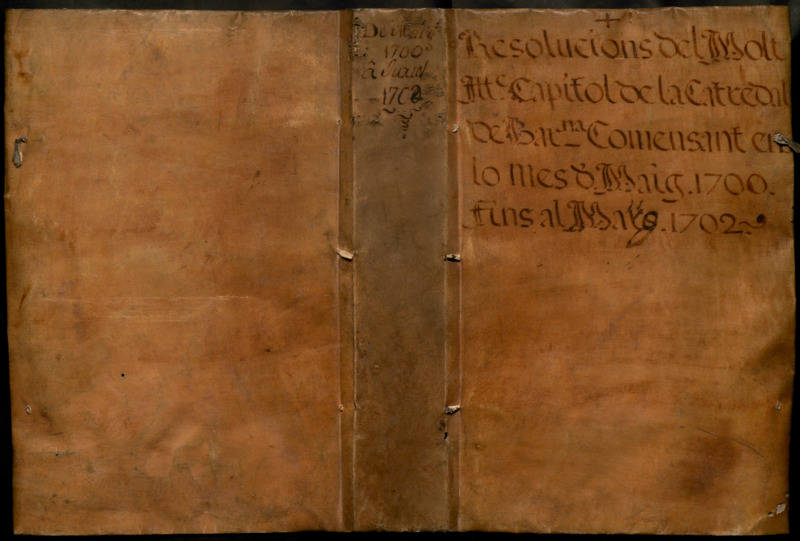 De
1700
â
1702
+
Resolucions del Molt
Itt.e Capitol de la Catredal
de Bar.na Comensant en
lo Mes d Maig. 1700.
Fins al 1702